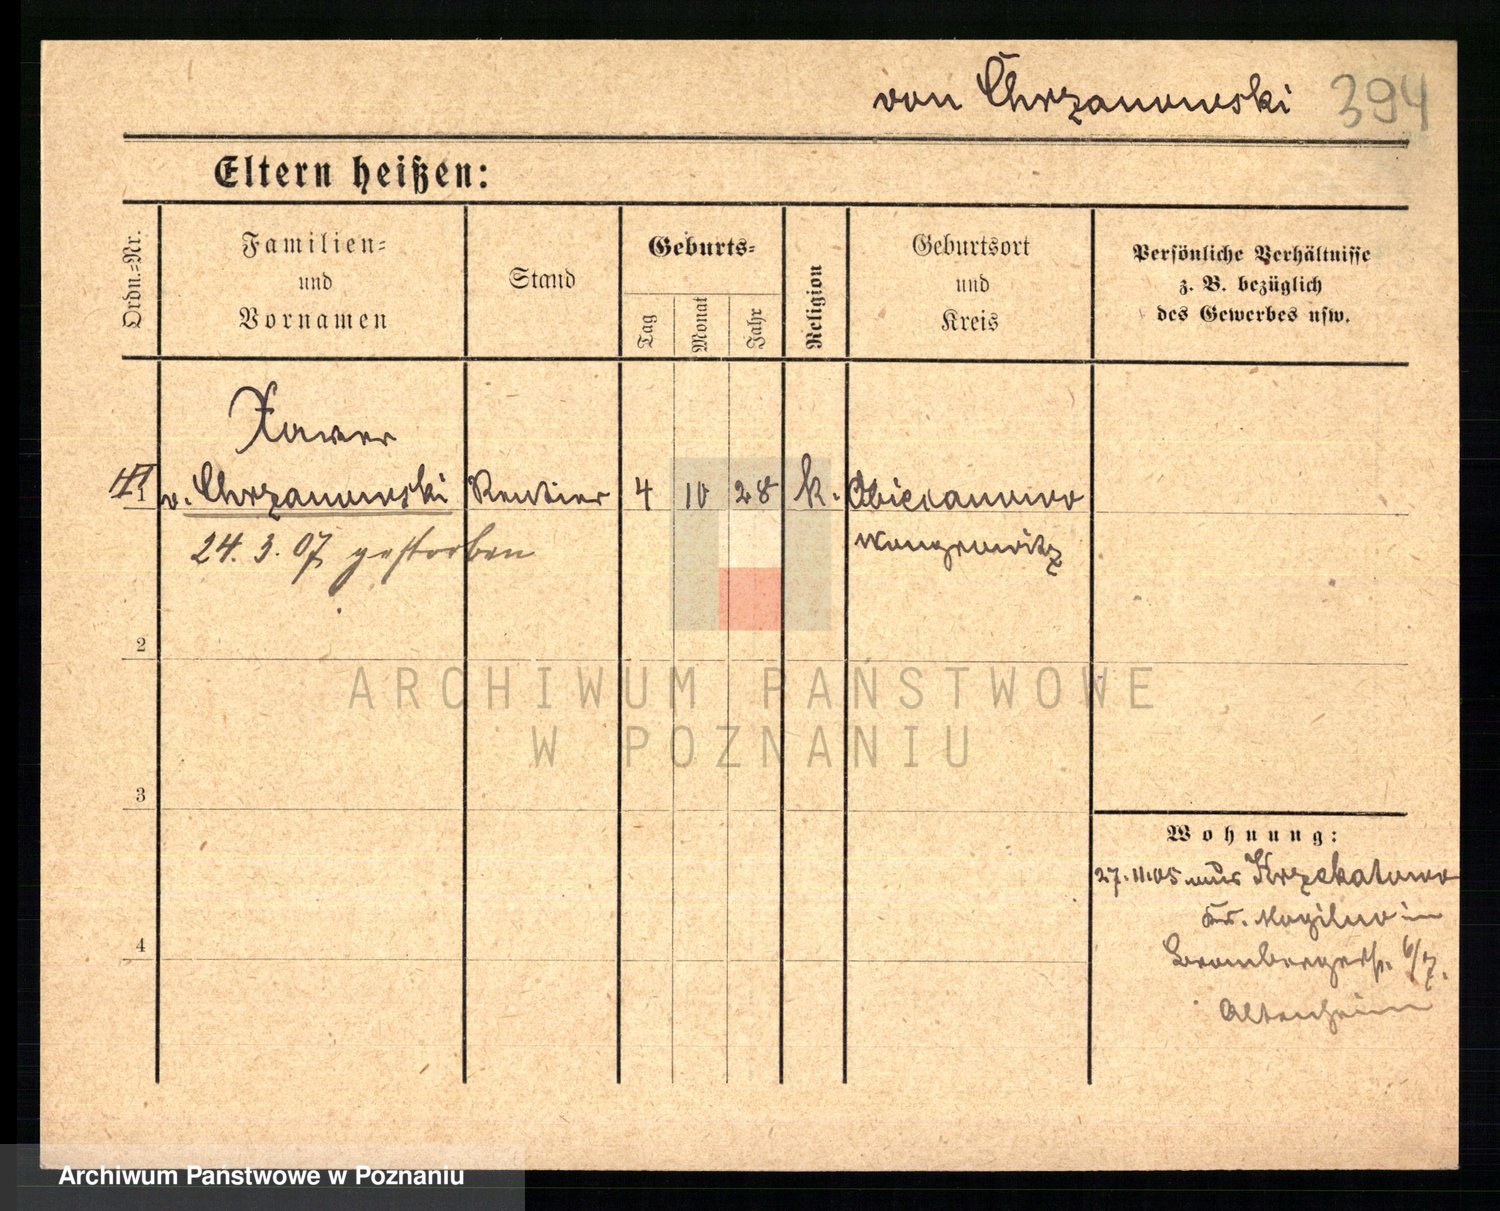 von Chrzanowski 394
Eltern heißen:
Ordn.=Nr.
Familien=
und
Vornamen
Stand
Geburts=
Tag
Monat
Jahr
Religion
Geburtsort
und
Kreis
Persönliche Verhältnisse
z. B. bezüglich
des Gewerbes usw.
Xaver
1 v. Chrzanowski Rentier 4 10 28 k. Obiecanowo
Wongrowitz
24.3.07 gestorben
2
3
4
Wohnung:
27.11.05 aus Krzekotowo
Kr. Mogilno in
Brombergerstr. 6/7.
Altenheim
ARCHIWUM PAŃSTWOWE
W POZNANIU
Archiwum Państwowe w Poznaniu